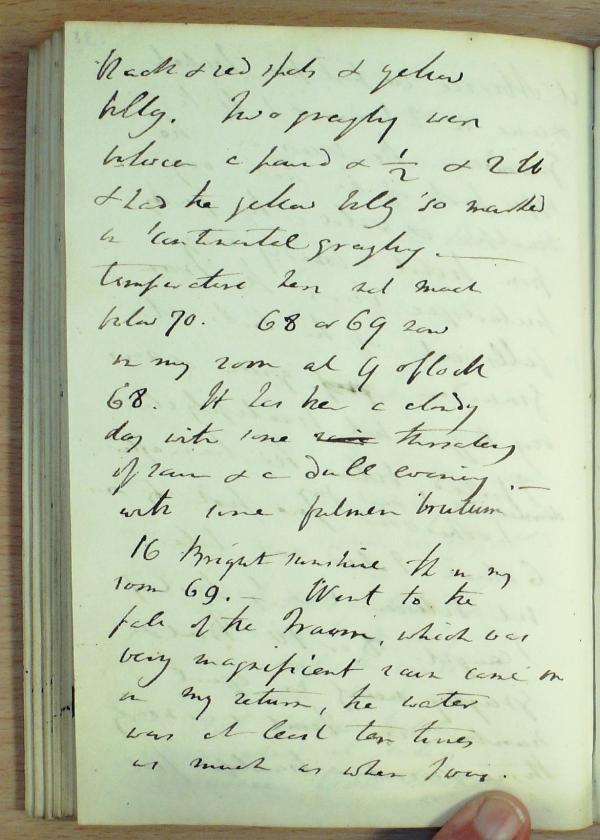 black & red spots & yellow
belly. Two grayling were
between a pound & 1/2 & 2 lb
& had the yellow belly so marked
in continental grayling. —
temperature here not much
below 70. 68 or 69 now
in my room at 9 oflock
68. It has been a cloudy
day with some rain threatening
of rain & a dull evening. —
with some fulmen brutum
16 Bright sunshine Th in my
room 69. — Went to the
fall of the Traun, which was
very magnificent rain came on
on my return, the water
was at least ten times
as much as when I was.